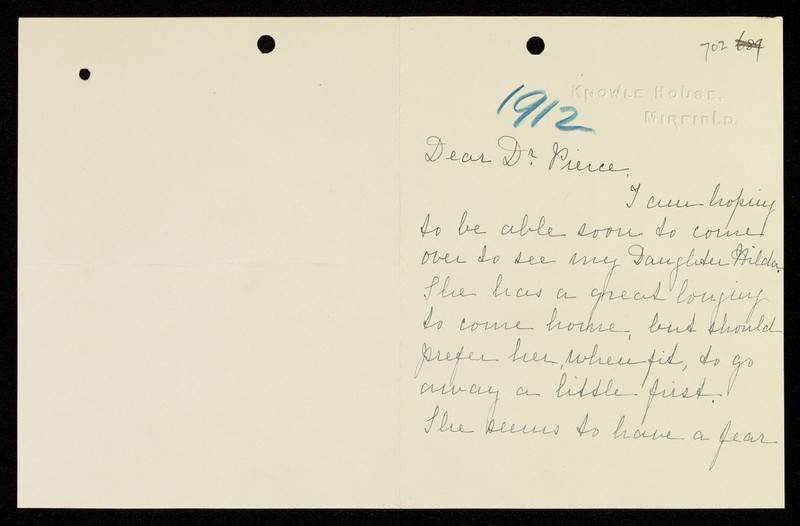 702 689
Knowle House,
Mirfield.
1912
Dear Dr. Pierce,
I am hoping
to be able soon to come
over to see my Daughter Hilda.
She has a great longing
to come home, but should
prefer her, when fit, to go
away a little first.
She seems to have a fear